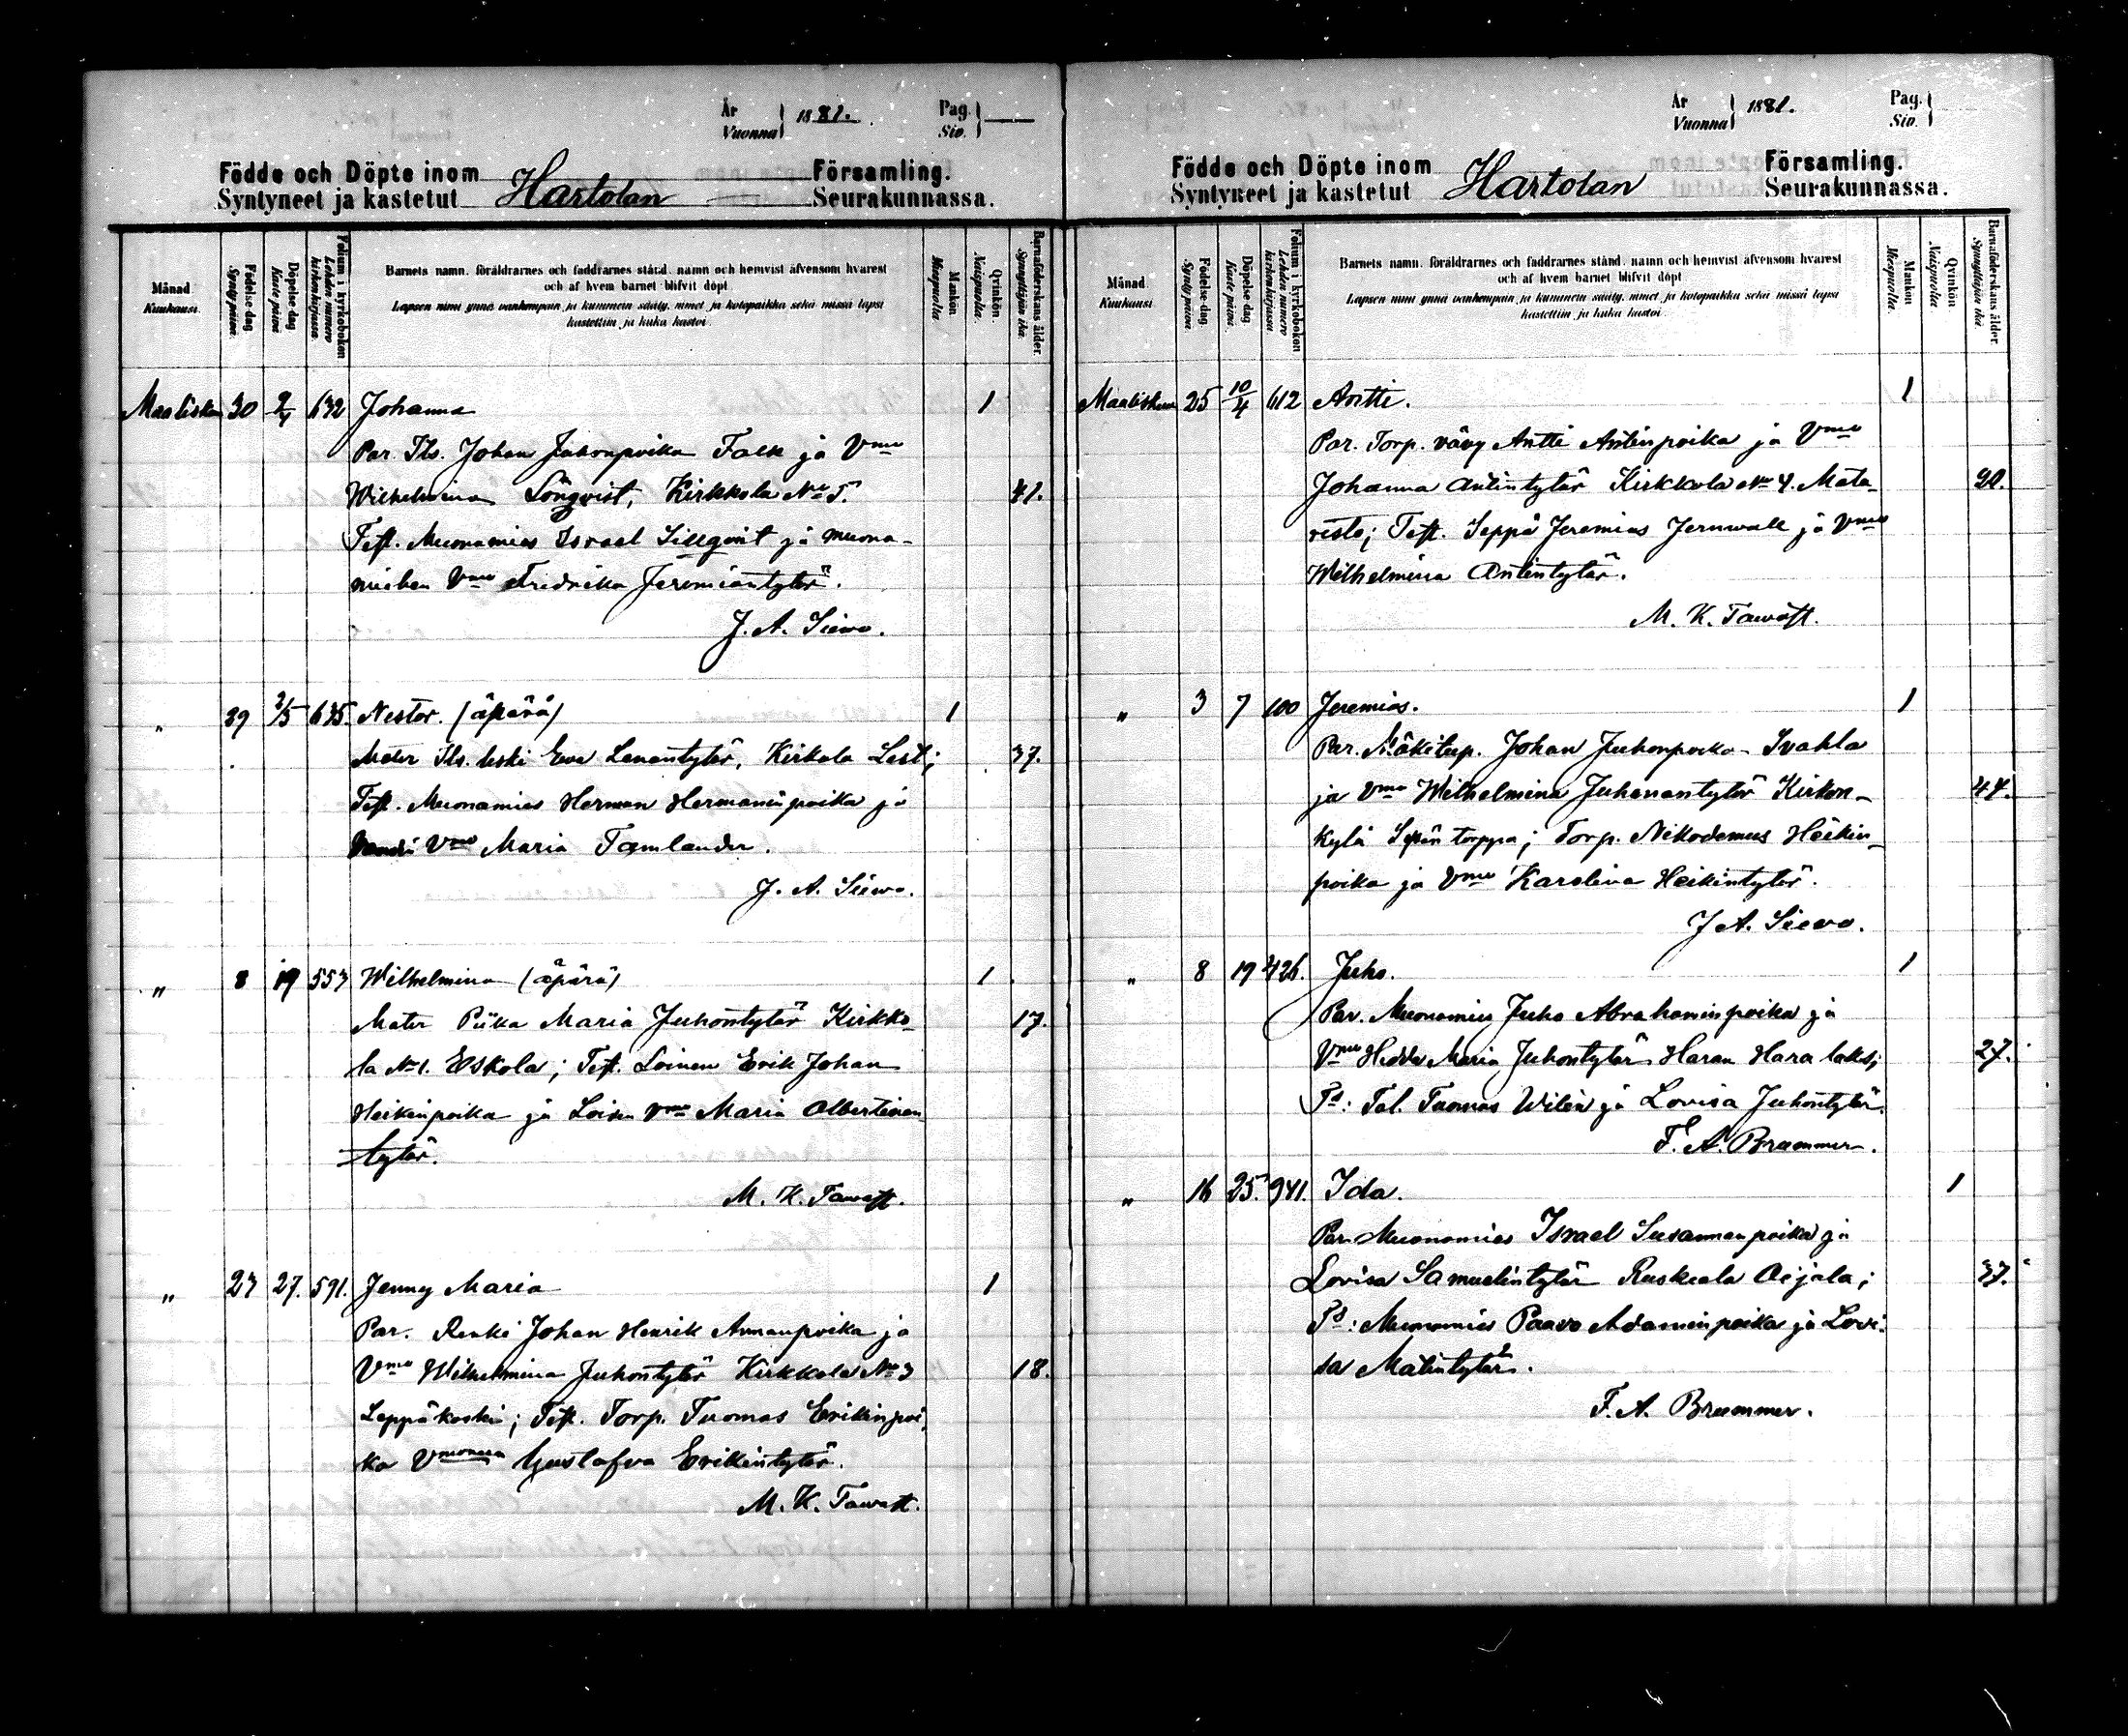 År
Vuonna 1881.
Pag.
Siv.
Födde och Döpte inom Församling.
Syntyneet ja kastetut Hartolan Seurakunnassa.
Månad
Kuukausi.
Födelse-dag
Syntypäivä.
Döpelse-dag
Kaste-päivä
Folium i kyrkoboken
Lehden numero
kirkonkirjassa
Barnets namn, föräldrarnes och faddrarnes stånd, namn och hemvist äfvensom hvarest
och af hvem barnet blifvit döpt.
Lapsen nimi ynnä vanhempain ja kummein sääty, nimet ja kotopaikka sekä missä lapsi
kastettiin ja kuka kastoi.
Mankön
Miespuolia.
Qvinkön.
Naispuolia.
Barnaföderskans ålder.
Synnyttäjän ikä.
Maalisku 30 2/4 632 Johanna 1
Par. Its. Johan Juhonpoika Falk ja Vmo
Wilhelmina Lönqvist, Kirkkola No 5. 41.
Test. Muonamies Israel Sillqvist ja muona-
miehen Vmo Fredrika Jeremiantytär.
J. A. Siewo.
" 29 3/5 635. Nestor. (äpärä) 1
Mater Its. leski Eva Lenantytär, Kirkola 37.
Test. Muonamies Herman Hermaninpoika ja
Vmo Maria Tamlander.
J. A. Siewo.
" 8 19 553 Wilhelmina (äpärä) 1
Mater Piika Maria Juhontytär Kirkko- 17.
la No 1. Eskola; Test. Loinen Erik Johan
Heikinpoika ja Loisen Vmo Maria Albertinan
tytär.
M. K. Tawast.
" 23 27. 591. Jenny Maria 1
Par. Renki Johan Henrik Annanpoika ja
Vmo Wilhelmina Juhontytär Kirkkola No 3 18.
Leppäkoski; Test. Torp. Tuomas Erikinpoi-
ka Vmonsa Gustafva Erikintytär.
M. K. Tawast.
År
Vuonna 1881.
Pag.
Siv.
Födde och Döpte inom Församling.
Syntyneet ja kastetut Hartolan Seurakunnassa.
Månad
Kuukausi.
Födelse-dag
Syntypäivä.
Döpelse-dag
Kaste-päivä.
Folium i kyrkoboken
Lehden numero
kirkonkirjassa
Barnets namn, föräldrarnes och faddrarnes stånd, namn och hemvist äfvensom hvarest
och af hvem barnet blifvit döpt.
Lapsen nimi ynnä vanhempain ja kummein sääty, nimet ja kotopaikka sekä missä lapsi
kastettiin ja kuka kastoi.
Mankön
Miespuolia.
Qvinkön
Naispuolia
Barnaföderskans ålder.
Synnyttäjän ikä.
Maaliskuu 25 10/4 612 Antti. 1
Par. Torp. vävy Antti Antinpoika ja Vmo
Johanna Antintytär Kirkkola No 4. Mata- 20.
risto; Test. Seppä Jeremias Jernwall ja Vmo
Wilhelmina Antintytär.
M. K. Tawast.
" 3 7 100 Jeremias. 1
Par. Mäkitup. Johan Juhonpoika Ivahla
ja Vmo Wilhelmina Juhanantytär Kirkon- 44.
kylä Sepän torppa; Torp. Nikodemus Heikin-
poika ja Vmo Karolina Heikintytär.
J A. Siewo.
" 8 19 426. Juho. 1
Par. Muonamies Juho Abrahaminpoika ja
Vmo Hedda Maria Juhontytär Haran Haralaks; 27.
Ts: Tal. Tuomas Wilén ja Lovisa Juhontytär.
F. A. Brummer.
" 16 25. 941. Ida. 1
Par. Muonamies Israel Susannanpoika ja
Lovisa Samuelintytär Ruskeala Aijala; 37.
Ts: Muonamies Paavo Adaminpoika ja Lovi-
sa Matintytär.
F. A. Brummer.